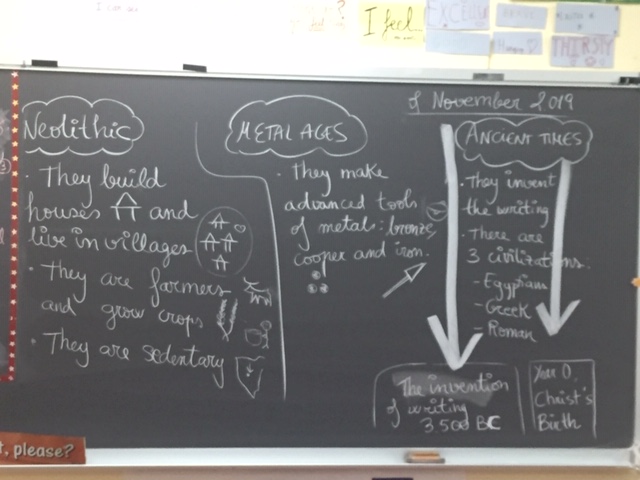 I can see
I feel
EXCELLENT
THIRSTY
of November 2019
Neolithic
· They build
houses and
live in villages
· They are farmers
and grow crops
· They are sedentary
METAL AGES
· They make
advanced tools
of metals: bronze,
cooper and iron.
ANCIENT TIMES
· They invent
the writing
· There are
3 civilizations:
- Egyptians
- Greek
- Roman
The invention
of writing
3.500 BC
Year 0,
Christ's
Birth
t, please?